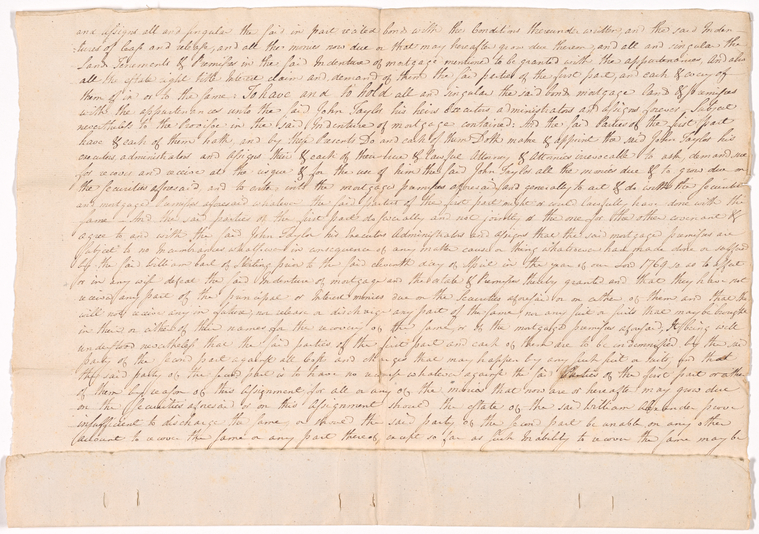 and assigns all and singular the said in part recited bond with the Conditions thereunder written, and the said Inden
tures of lease and release, and all the monies now due or that may hereafter grow due thereon, and all and singular the
Land Tenements & Premises in the said Indenture of mortgage mentioned to be granted with the appurtenances And also
all the estate right title Interest claim and demand of them the said parties of the first part, and each & every of
them of in or to the same: To have and to hold all and singular the said bond mortgage Land & premises
with the appurtenances unto the said John Taylor his heirs Executors administrators and assigns forever, Subject
nevertheless to the Provisoe in the Said Indenture of mortgage contained: And the said Parties of the first Part
have & each of them hath, and by these Presents Do and each of them Doth make & appoint the said John Taylor his
executors administrators and assigns their & each of their true & lawful Attorney & Attornies irrevocable to ask, demand, sue
for recover and receive at the risque & for the use of him the said John Taylor all the monies due & to grow due on
the Securities aforesaid, and to enter into the mortgaged premises aforesaid and generally to act & do in the Securities
and mortgaged Premises aforesaid whatever the said Parties of the first part might or could lawfully have done with the
same — And the said parties of the first part do severally and not jointly & the one for the other covenant &
agree to and with the said John Taylor his Executors Administrators and assigns that the said mortgage premises are
subject to no Incumbrances whatsoever in consequence of any matter cause or thing whatsoever had made done or suffered
by the said William Earl of Stirling prior to the said eleventh day of April in the year of our Lord 1769 so as to affect
or in any wise defeat the said Indenture of mortgage and the Estate & Premises thereby granted and that they have not
received any part of the principal or Interest monies due on the Securities aforesaid or on either of them and that they
will not receive any in future, nor release or discharge any part of the same, nor any suit or suits that may be brought
in their or either of their names for the recovery of the same, or of the mortgaged premises aforesaid, It being well
understood nevertheless that the said parties of the first part and each of them are to be indemnified by the said
party of the second part against all Costs and charges that may happen by any such suit or suits, and that
the said party of the second part is to have no recourse whatever against the said Parties of the first part or either
of them by reason of this assignment for all or any of the monies that now are or hereafter may grow due
on the Securities aforesaid or on this assignment should the estate of the said William prove
insufficient to discharge the same, or should the said party of the second part be unable on any other
account to recover the same or any part thereof, except so far as such Inability to recover the same may be